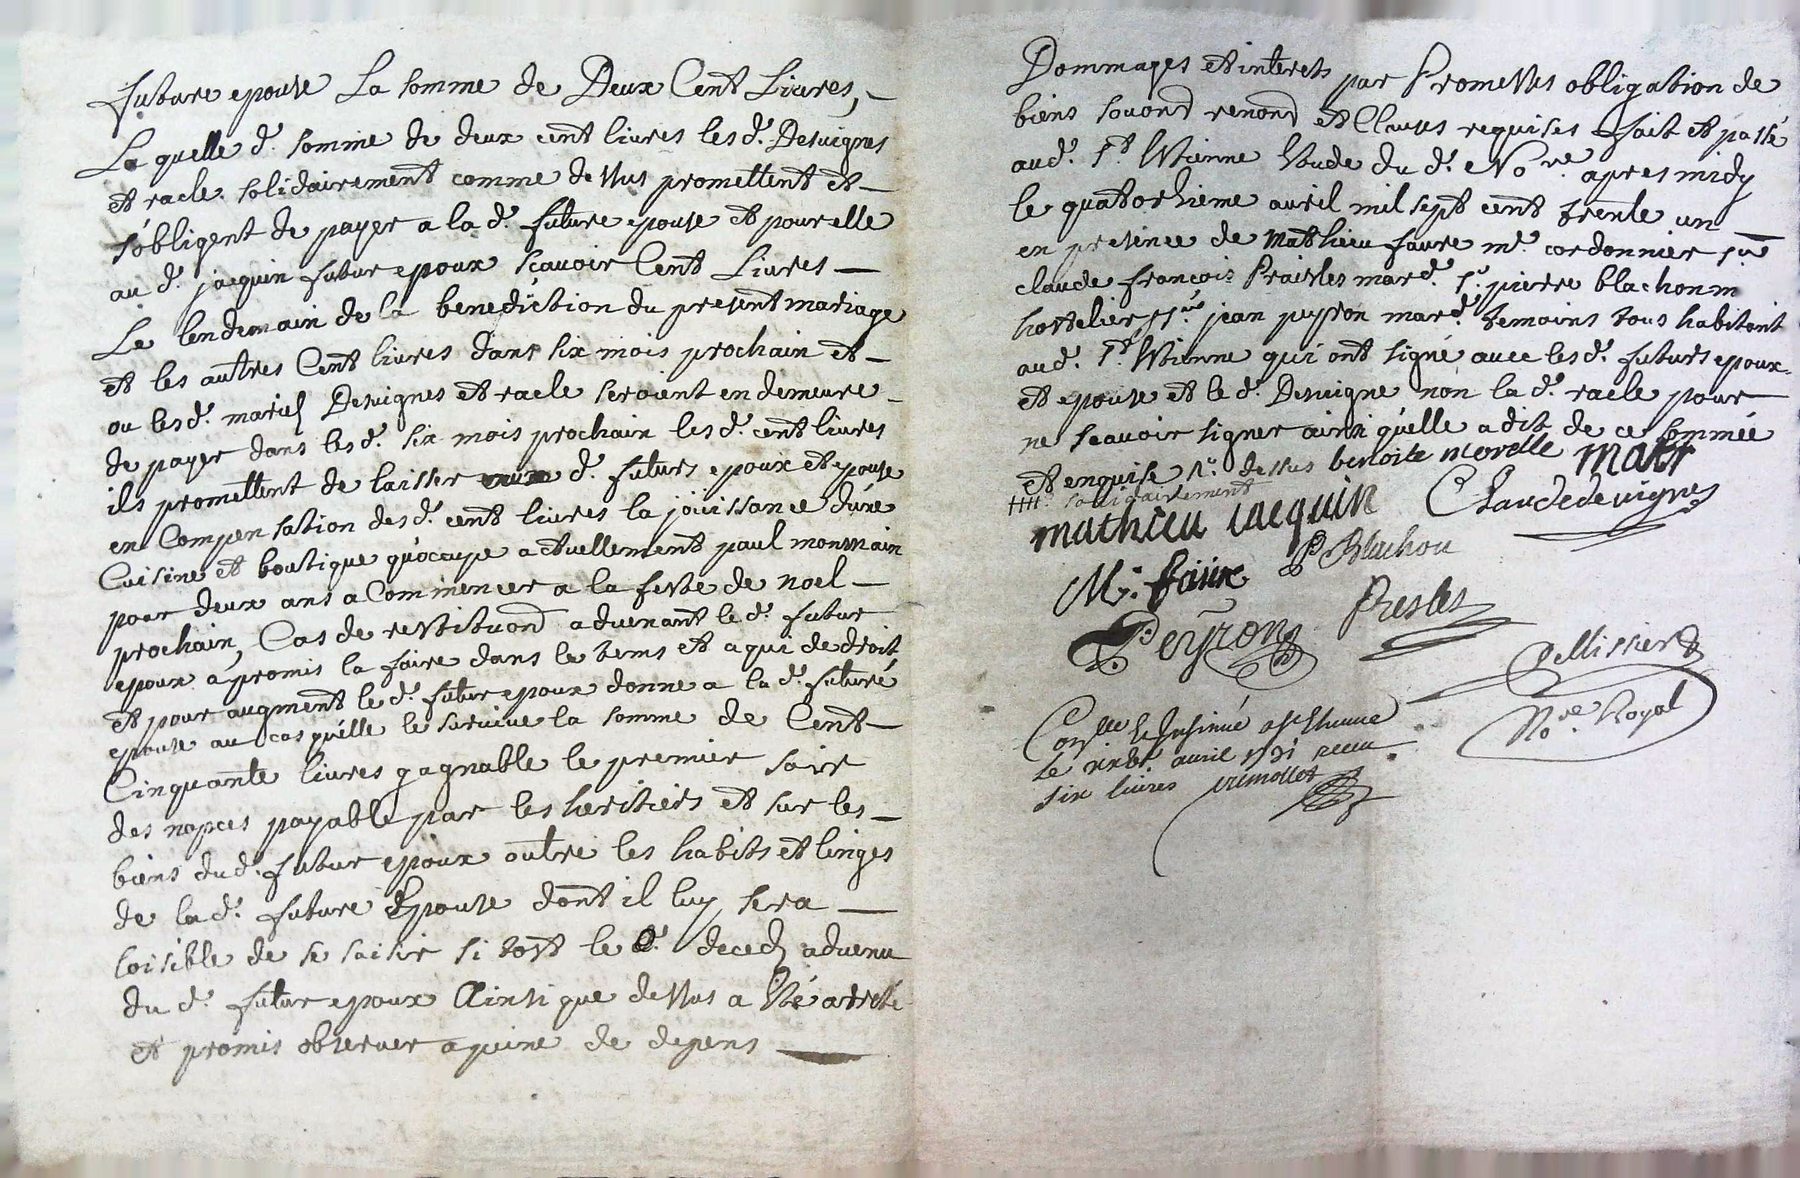 future epouse La somme de Deux Cent Livres,
La quelle d. somme de deux cent livres les d. Desvignes
et racle solidairement comme dessus promettent et
s'obligent de payer a la d. future epouse et pour elle
au d. jacquin futur epoux scavoir Cent Livres
Le lendemain de la benediction du present mariage
et les autres Cent livres dans six mois prochain et
ou les d. mariés Desvignes et racle seroient en demeure
de payer dans les d. six mois prochain les d. cent livres
ils promettent de laisser aux d. futurs epoux et epouse
en Compensation des d. cent livres la joüissance dune
Cuisine et boutique qu'occupe actuellement paul monmain
pour deux ans a Commencer a la feste de noel
prochain, Cas de restituon advenant le d. futur
epoux a promis la faire dans le tems et a qui de droit
et pour augment le d. futur epoux donne a la d. future
epouse au cas qu'elle le survive la somme de Cent
Cinquante livres gagnable le premier soir
des nopces payable par les heritiers et sur les
biens du d. futur epoux outre les habits et linges
de la d. future Epouse dont il luy sera
loisible de se saisir si tost le d. deced advenu
du d. futur epoux Ainsi que dessus a été arresté
et promis observer a peine de depens
Dommages et interets par Promesses obligation de
biens soubon renon et Clauses requises fait et passé
au d. St. Etienne Etude du d. No.re apres midy
le quatorzieme avril mil sept cent trente un
en presence de Mathieu faure m.e cordonnier
claude françois Prailles mar.d pierre blachon m
hostelier jean peyron mar.d temoins tous habitant
au d. St. Etienne qui ont signé avec les d. futurs epoux
et epouse et le d. Desvigne non la d. racle pour
ne scavoir signer ainsi qu'elle a dit de ce sommée
et enquise dessus benoite merelle
solidairement
mathieu jacquin Claude devignes
M. faure P Blachon
Peyron Presles
Pellissier
No.re Royal
Con.lle & Insinué a St Etienne
Le avril 1731 receu
six livres